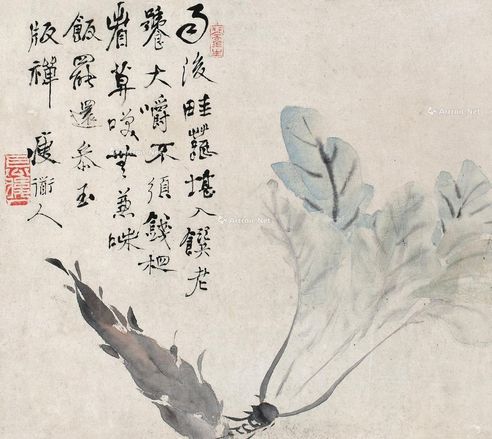 雨後畦蔬堪入饌老
饕大嚼不須錢
嘆無兼味
飯罷還參玉
版禪
瘦衢人
Artron.Net
Artron.Net